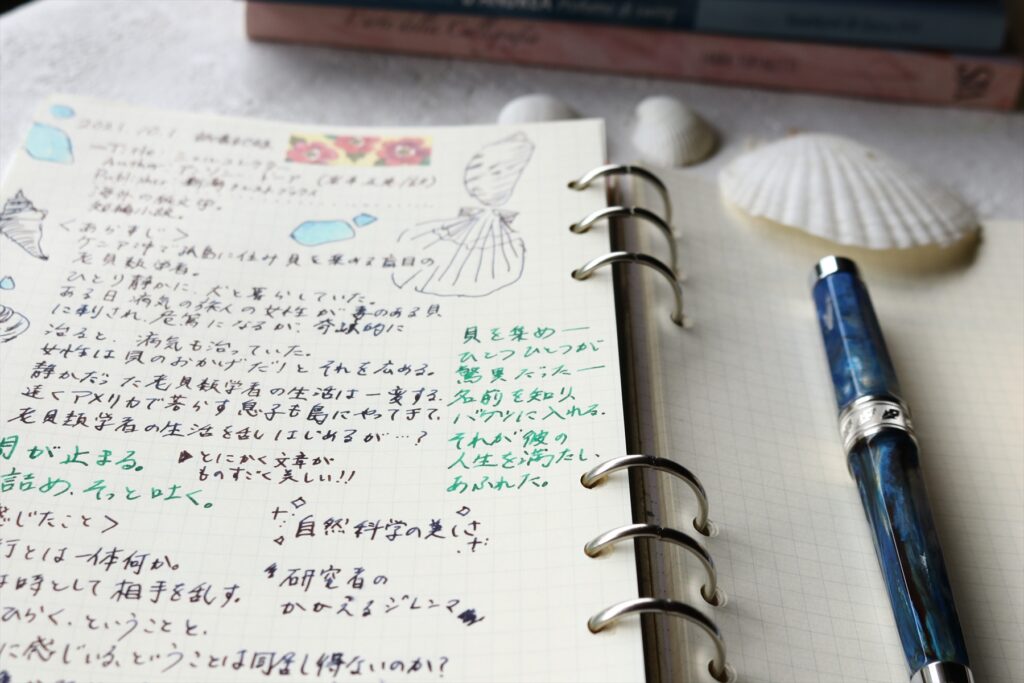 D'ANDREA
2021.10.1
Title: シェル・コレクター
Author: アンソニー・ドーア
Publisher: 新潮クレストブックス
海外の純文学。
短編小説。
<あらすじ>
ケニア沖で孤島に住み貝を集める盲目の
老貝類学者。
ひとり静かに、犬と暮らしていた。
ある日病気の旅人の女性が毒のある貝
に刺され、危篤になるが、奇跡的に
治ると、病気も治っていた。
女性は貝のおかげだ!とそれを広める。
静かだった老貝類学者の生活は一変する。
遠くアメリカで暮らす息子も島にやってきて、
老貝類学者の生活を乱しはじめるが…?
貝を集め—
ひとつひとつが
驚異だった—
名前を知り、
バケツに入れる。
それが彼の
人生を満たし、
あふれた。
が止まる。
詰め、そっと吐く。
とにかく文章が
ものすごく美しい!!
じたこと>
自然科学の美しさ
とは一体何か。
は時として相手を乱す。
研究者の
かかえるジレンマ
ひらく、ということと、
に感じいる、ということは同居し得ないのか?